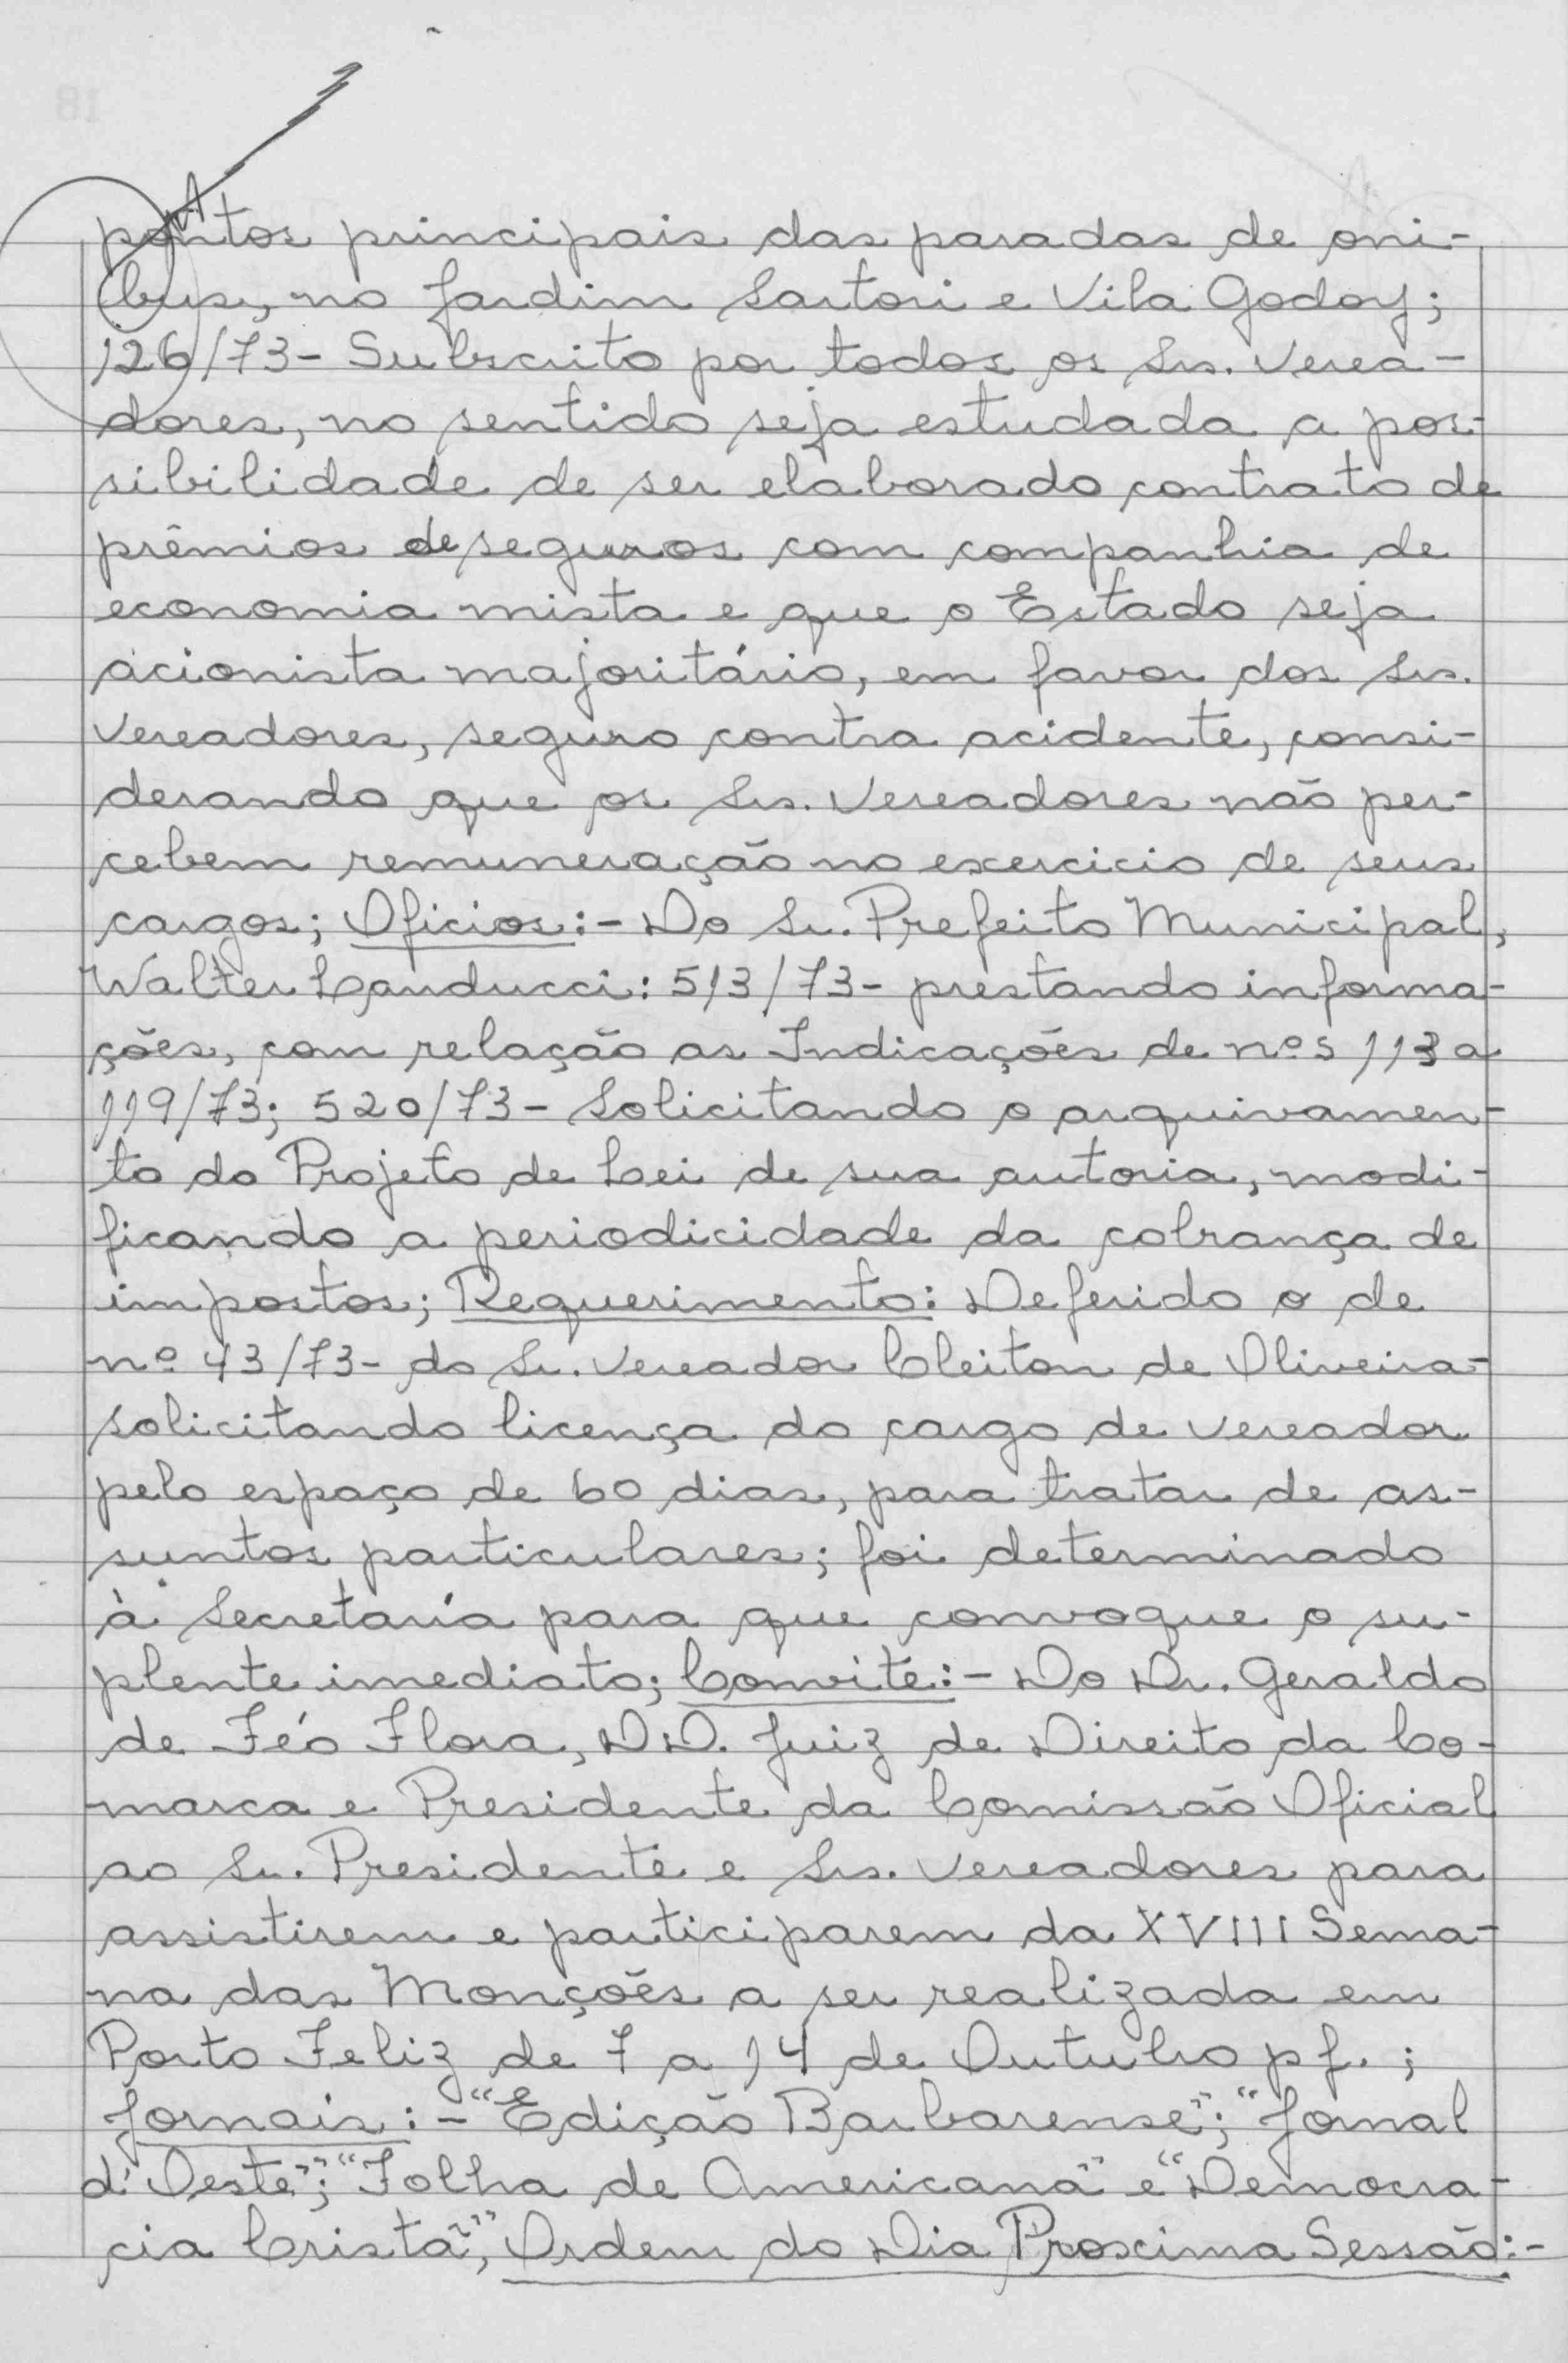 pontos principais das paradas de oni-
bus, no Jardim Sartori e Vila Godoy;
126/73- Subscrito por todos os Srs. Verea-
dores, no sentido seja estudada a pos-
sibilidade de ser elaborado contrato de
prêmios de seguros com companhia de
economia mista e que o Estado seja
acionista majoritário, em favor dos Srs.
Vereadores, seguro contra acidente, consi-
derando que os Srs. Vereadores não per-
cebem remuneração no exercicio de seus
cargos; Oficios:- Do Sr. Prefeito Municipal,
Walter Landucci: 513/73- prestando informa-
ções, com relação as Indicações de nºs 113 a
119/73; 520/73- Solicitando o arquivamen-
to do Projeto de Lei de sua autoria, modi-
ficando a periodicidade da cobrança de
impostos; Requerimento: Deferido o de
nº 43/73- do Sr. Vereador Cleiton de Oliveira-
solicitando licença do cargo de vereador
pelo espaço de 60 dias, para tratar de as-
suntos particulares; foi determinado
à Secretaria para que convoque o su-
plente imediato; Convite:- Do Dr. Geraldo
de Féo Flora, DD. Juiz de Direito da Co-
marca e Presidente da Comissão Oficial
ao Sr. Presidente e Srs. Vereadores para
assistirem e participarem da XVIII Sema-
na das Monções a ser realizada em
Porto Feliz de 7 a 14 de Outubro pf.;
Jornais:- "Edição Barbarense"; "Jornal
d'Oeste"; "Folha de Americana" e "Democra-
cia Cristã", Ordem do Dia Proxima Sessão:-